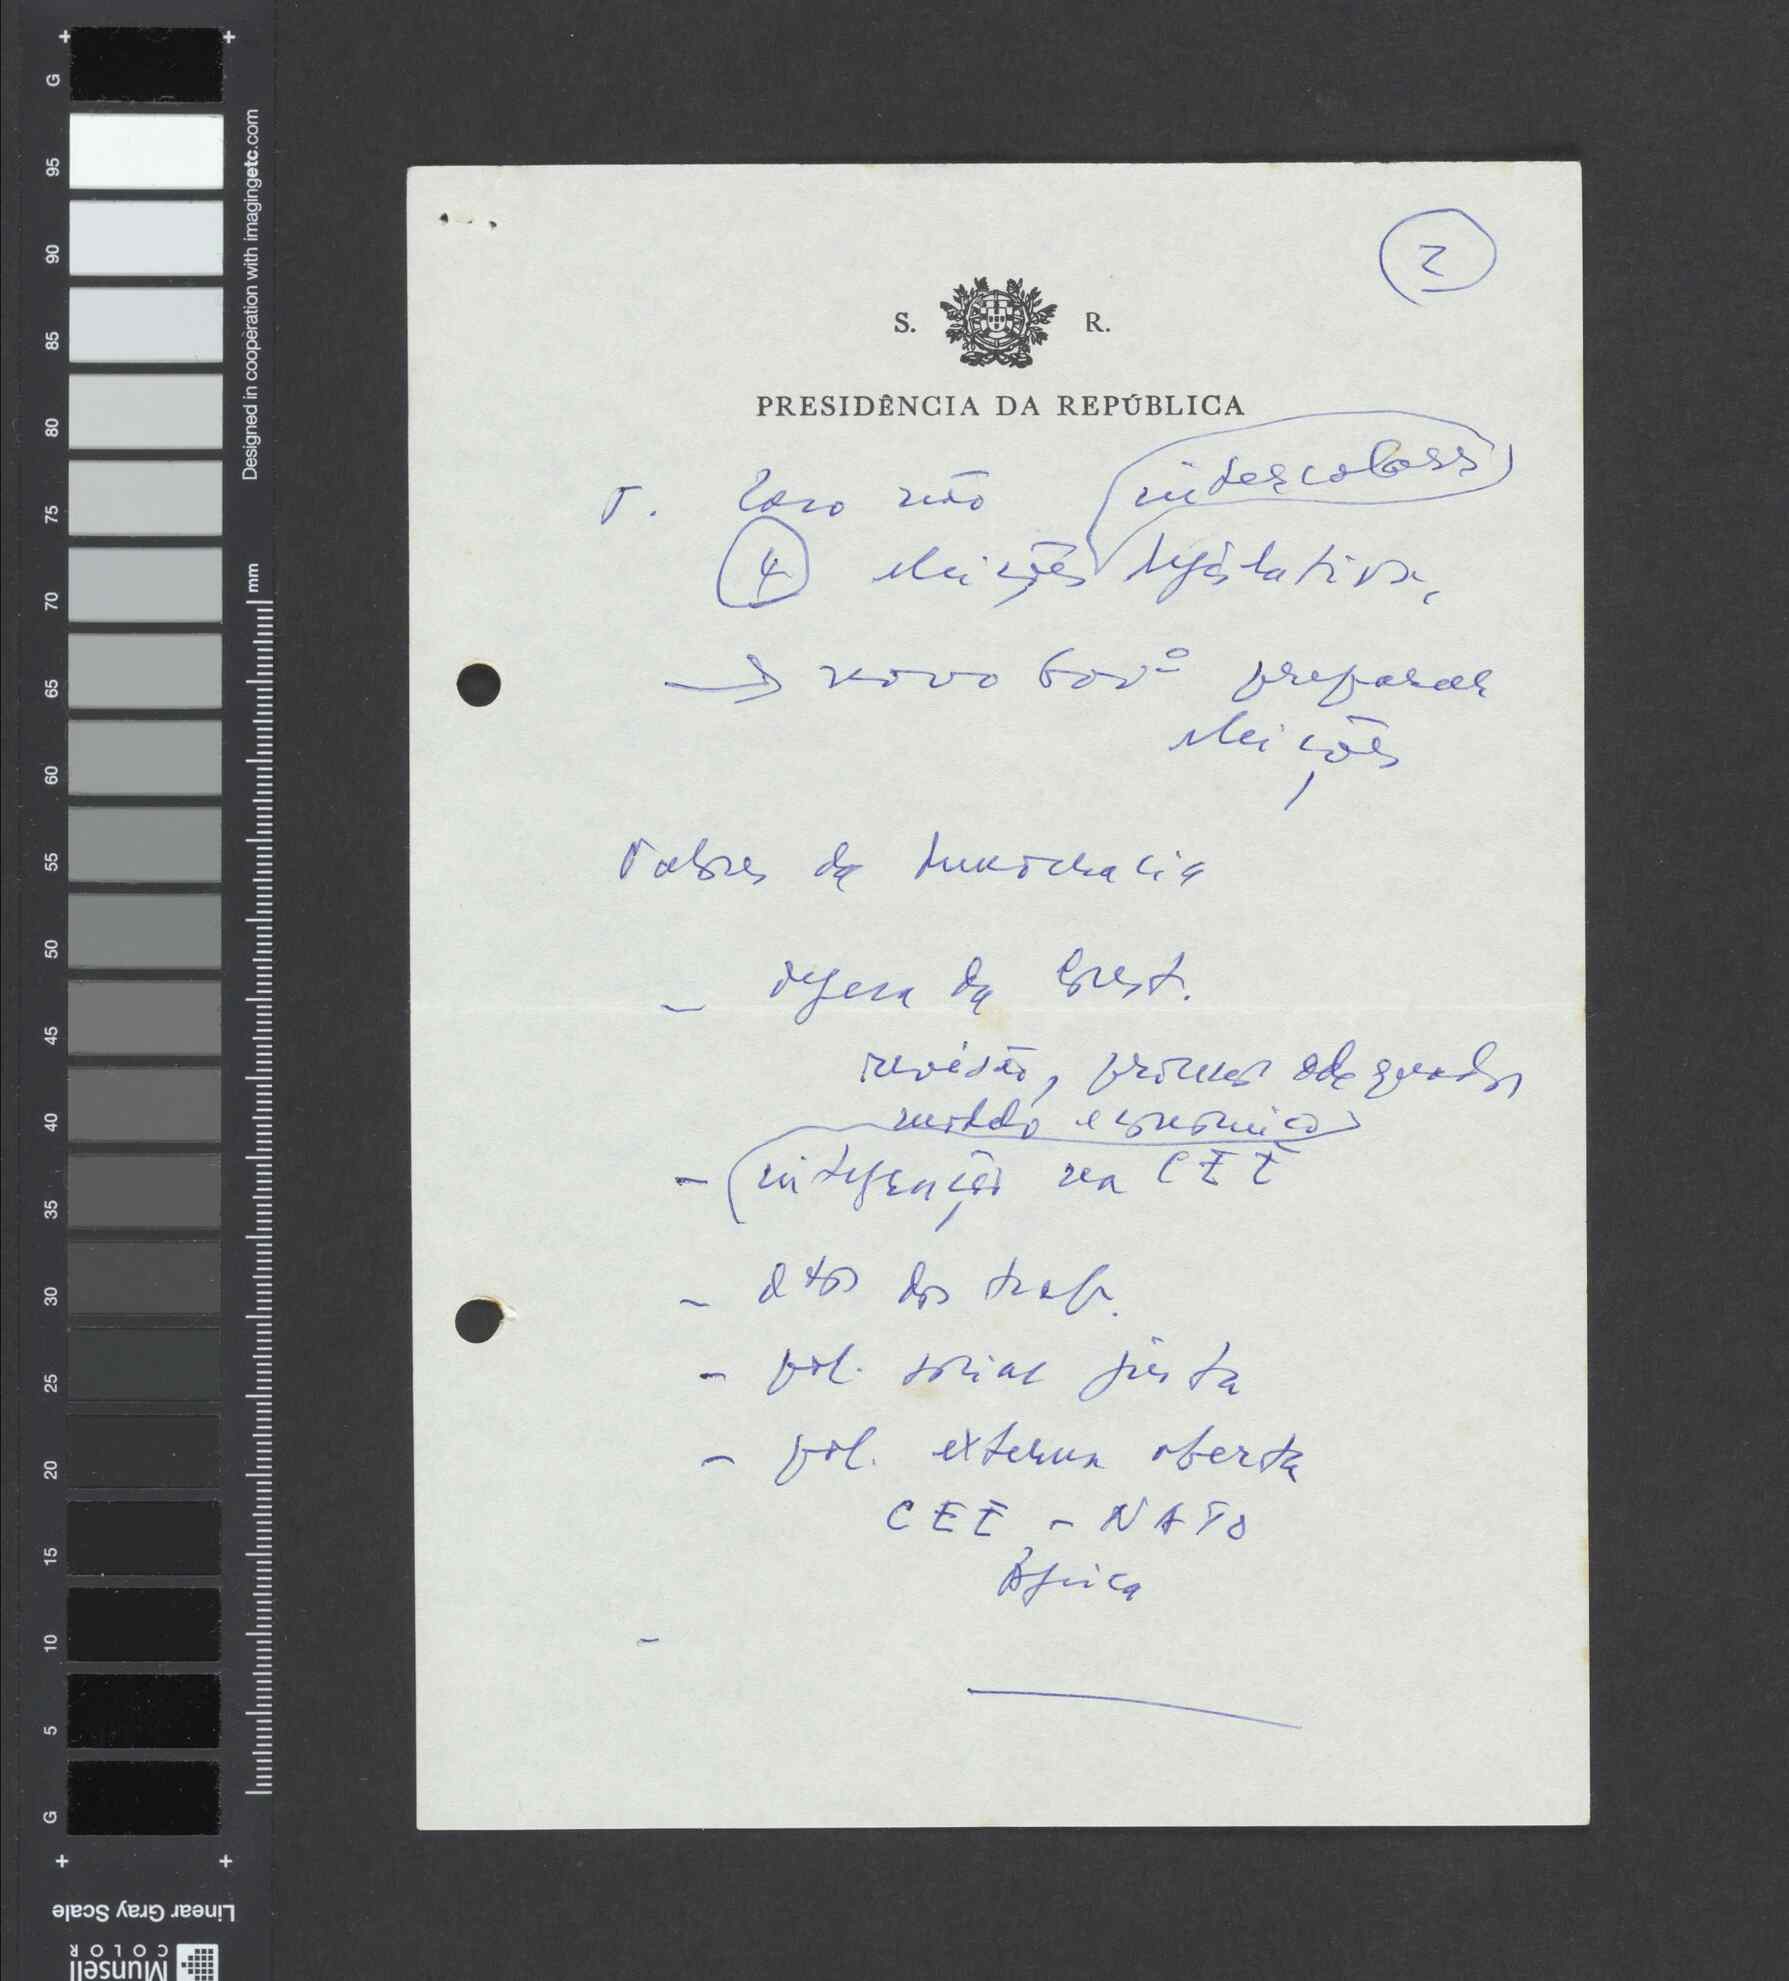 2
S. R.
PRESIDÊNCIA DA REPÚBLICA
V. Caso não intercalares
4 eleições legislativas
→ novo Govº preparar
eleições
Valores da democracia
- defesa da Const.
revisão, processo adequado,
modelo económico
- integração na CEE
- dtos dos trab.
- pol. social justa
- pol. externa aberta
CEE - NATO
África
-
G
95
90
85
80
75
70
65
60
55
50
45
40
35
30
25
20
15
10
5
G
Designed in cooperation with imagingetc.com
mm
Linear Gray Scale
Munsell
COLOR